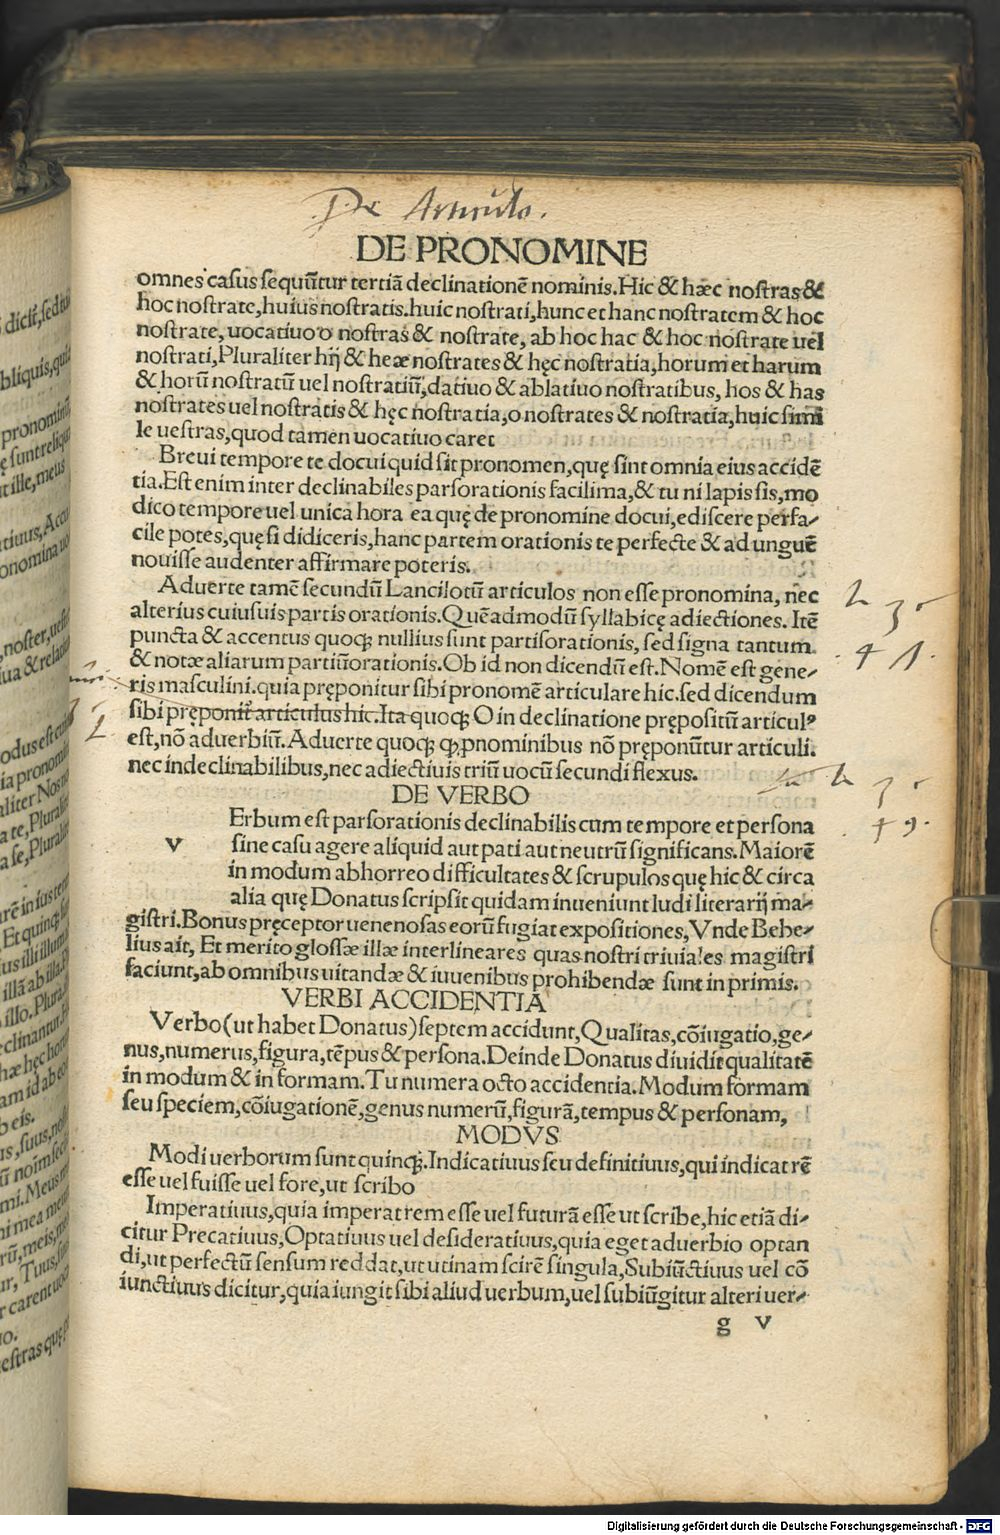 De Articulo.
DE PRONOMINE
omnes casus sequũtur tertiã declinationẽ nominis. Hic & hæc nostras &
hoc nostrate, huius nostratis. huic nostrati, hunc et hanc nostratem & hoc
nostrate, uocatiuo o nostras & nostrate, ab hoc hac & hoc nostrate uel
nostrati, Pluraliter hij & heæ nostrates & hęc nostratia, horum et harum
& horũ nostratũ uel nostratiũ, datiuo & ablatiuo nostratibus, hos & has
nostrates uel nostratis & hęc nostratia, o nostrates & nostratia, huic simi
le uestras, quod tamen uocatiuo caret
Breui tempore te docui quid sit pronomen, quę sint omnia eius accidẽ
tia. Est enim inter declinabiles parsorationis facilima, & tu ni lapis sis, mo
dico tempore uel unica hora ea quę de pronomine docui, ediscere perfa⸗
cile potes, quę si didiceris, hanc partem orationis te perfecte & ad unguẽ
nouisse audenter affirmare poteris.
Aduerte tamẽ secundũ Lancilotũ articulos non esse pronomina, nec
alterius cuiusuis partis orationis. Quẽadmodũ syllabicę adiectiones. Itẽ
puncta & accentus quoqꝫ nullius sunt partisorationis, sed signa tantum
& notæ aliarum partiũorationis. Ob id non dicendũ est. Nomẽ est gene⸗
ris masculini. quia pręponitur sibi pronomẽ articulare hic. sed dicendum
sibi pręponit̃ articulus hic. Ita quoqꝫ O in declinatione prępositũ articulꝰ
est, nõ aduerbiũ. Aduerte quoqꝫ ꝙ ꝓnominibus nõ pręponũtur articuli.
nec indeclinabilibus, nec adiectiuis triũ uocũ secundi flexus.
DE VERBO
v Erbum est parsorationis declinabilis cum tempore et persona
sine casu agere aliquid aut pati aut neutrũ significans. Maiorẽ
in modum abhorreo difficultates & scrupulos quę hic & circa
alia quę Donatus scripsit quidam inueniunt ludi literarij ma⸗
gistri. Bonus pręceptor uenenosas eorũ fugiat expositiones, Vnde Bebe⸗
lius ait, Et merito glossæ illæ interlineares quas nostri triuiales magistri
faciunt, ab omnibus uitandæ & iuuenibus prohibendæ sunt in primis.
VERBI ACCIDENTIA
Verbo (ut habet Donatus) septem accidunt, Qualitas, cõiugatio, ge⸗
nus, numerus, figura, tẽpus & persona. Deinde Donatus diuidit qualitatẽ
in modum & in formam. Tu numera octo accidentia. Modum formam
seu speciem, cõiugationẽ, genus numerũ, figurã, tempus & personam,
MODVS
Modi uerborum sunt quinqꝫ. Indicatiuus seu definitiuus, qui indicat rẽ
esse uel fuisse uel fore, ut scribo
Imperatiuus, quia imperat rem esse uel futurã esse ut scribe, hic etiã di⸗
citur Precatiuus, Optatiuus uel desideratiuus, quia eget aduerbio optan
di, ut perfectũ sensum reddat, ut utinam scirẽ singula, Subiũctiuus uel cõ
iunctiuus dicitur, quia iungit sibi aliud uerbum, uel subiũgitur alteri uer⸗
g v
Digitalisierung gefördert durch die Deutsche Forschungsgemeinschaft - DFG